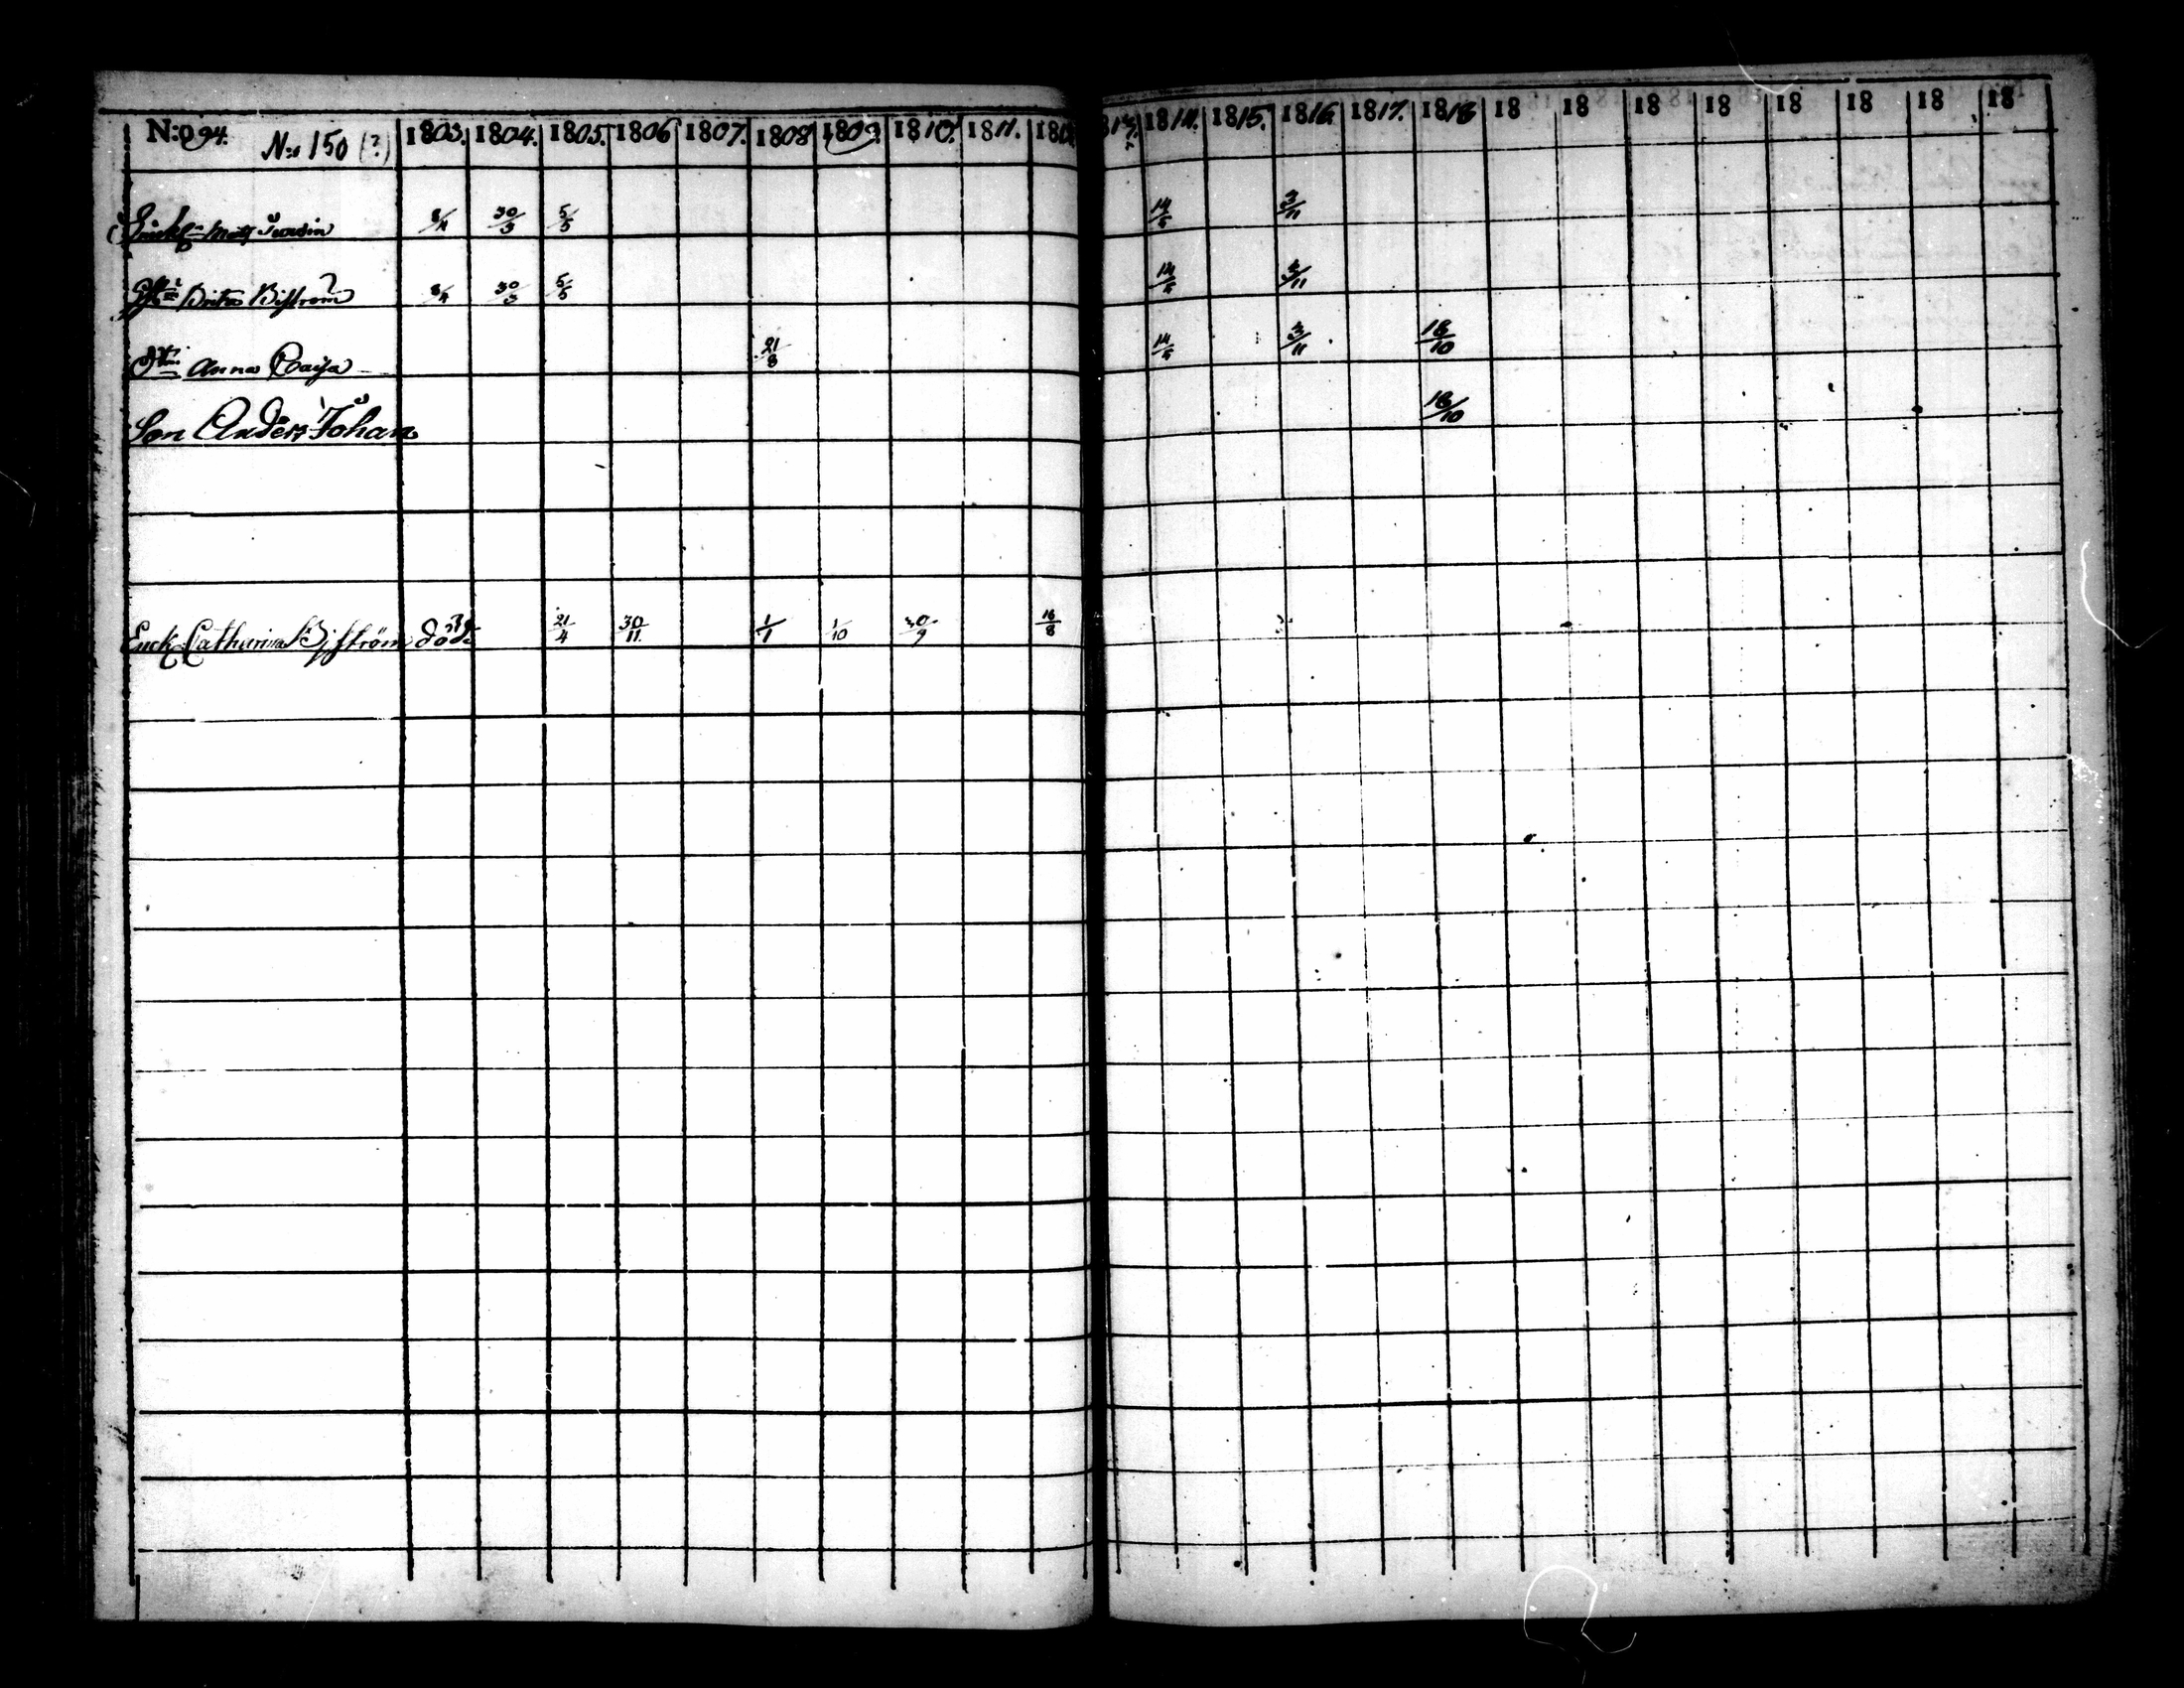 N:o 94. N:o 150 (?) 1803. 1804. 1805. 1806 1807. 1808 1809. 1810. 1811. 1814. 1815. 1816. 1817. 1818 18 18 18 18 18 18 18 18
8/4 30/3 5/5 14/5 3/11
Brita Biström 8/4 30/3 5/5 14/5 3/11
Anna Caisa 21/8 14/5 3/11 18/10
Son Anders Johan 18/10
Enck Catharina Bjström död 21/4 30/11 1/1 1/10 30/9 16/8